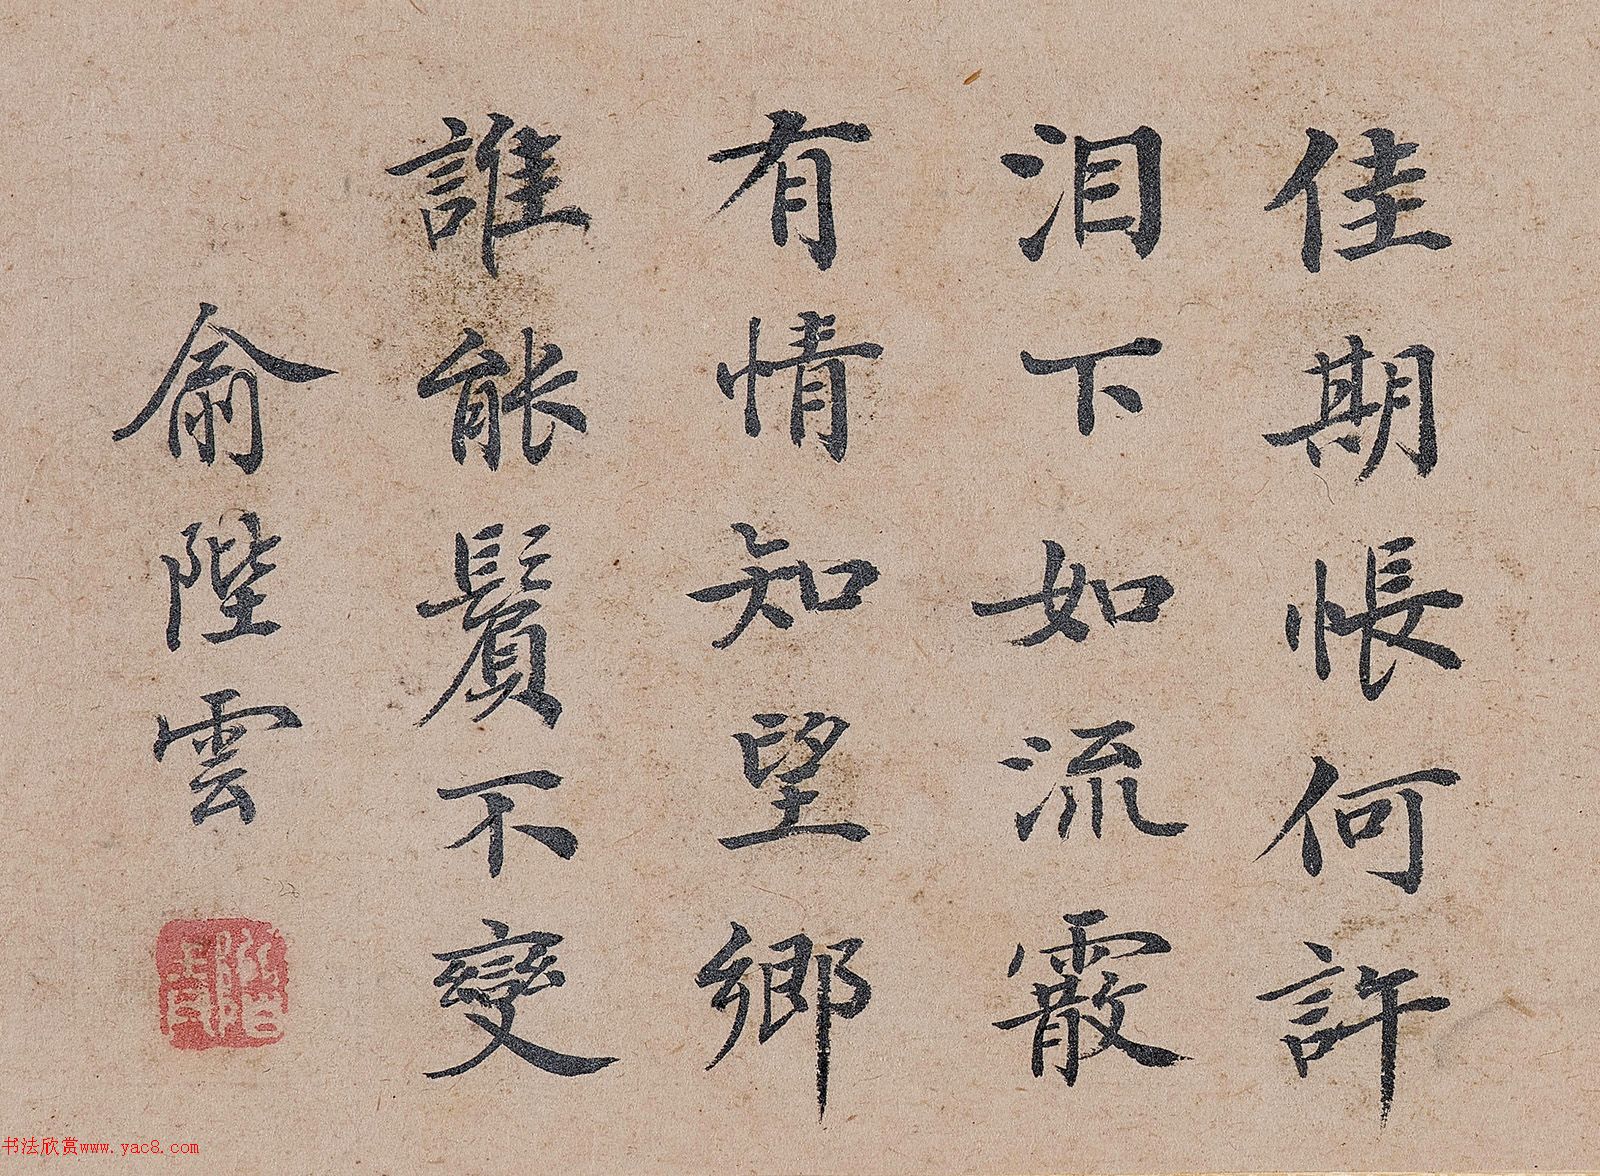 佳期悵何許
泪下如流霰
有情知望鄉
誰能鬢不變
俞陛雲
书法欣赏www.yac8.com